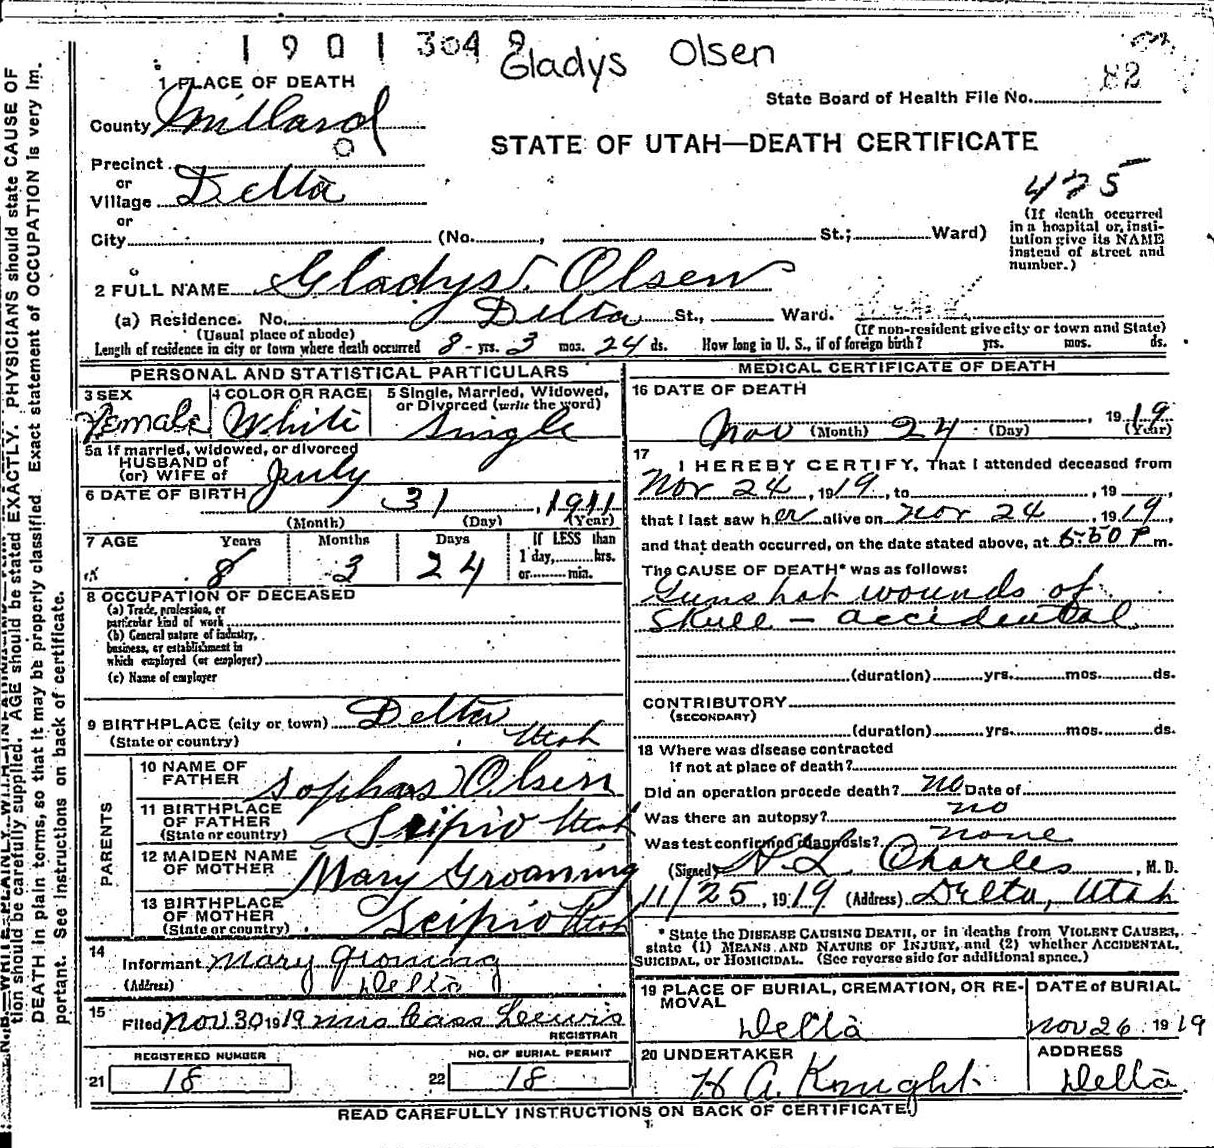 1901304 9 Gladys Olsen
82
1 PLACE OF DEATH
State Board of Health File No.
County Millard
STATE OF UTAH—DEATH CERTIFICATE
Precinct
or
Village Delta
475
or
City (No. , St.; Ward)
(If death occurred
in a hospital or insti-
tution give its NAME
instead of street and
number.)
2 FULL NAME Gladys Olsen
(a) Residence. No. Delta St., Ward.
(Usual place of abode) (If non-resident give city or town and State)
Length of residence in city or town where death occurred 8 yrs. 3 mos. 24 ds. How long in U. S., if of foreign birth? yrs. mos. ds.
PERSONAL AND STATISTICAL PARTICULARS
3 SEX
Female
4 COLOR OR RACE
White
5 Single, Married, Widowed,
or Divorced (write the word)
Single
5a If married, widowed, or divorced
HUSBAND of
(or) WIFE of
6 DATE OF BIRTH July 31, 1911
(Month) (Day) (Year)
7 AGE Years Months Days If LESS than
1 day, hrs.
or min.
8 3 24
8 OCCUPATION OF DECEASED
(a) Trade, profession, or
particular kind of work
(b) General nature of industry,
business, or establishment in
which employed (or employer)
(c) Name of employer
9 BIRTHPLACE (city or town) Delta
(State or country) Utah
PARENTS
10 NAME OF
FATHER Sophus Olsen
11 BIRTHPLACE
OF FATHER
(State or country) Scipio Utah
12 MAIDEN NAME
OF MOTHER Mary Groaning
13 BIRTHPLACE
OF MOTHER
(State or country) Scipio Utah
14
Informant Mary Groning
(Address) Delta
15
Filed Nov 30 1919 Mrs Cass Leewis
REGISTRAR
REGISTERED NUMBER
21 18
NO. OF BURIAL PERMIT
22 18
MEDICAL CERTIFICATE OF DEATH
16 DATE OF DEATH
Nov (Month) 24 (Day) 1919 (Year)
17
I HEREBY CERTIFY, That I attended deceased from
Nov 24, 1919, to , 19 ,
that I last saw her alive on Nov 24 1919,
and that death occurred, on the date stated above, at 5:50 P m.
The CAUSE OF DEATH* was as follows:
Gunshot wounds of
Skull — accidental
(duration) yrs. mos. ds.
CONTRIBUTORY
(SECONDARY)
(duration) yrs. mos. ds.
18 Where was disease contracted
if not at place of death?
Did an operation precede death? no Date of
Was there an autopsy? no
Was test confirmed diagnosis? none
(Signed) Charles, M. D.
11/25, 1919 (Address) Delta, Utah
* State the DISEASE CAUSING DEATH, or in deaths from VIOLENT CAUSES,
state (1) MEANS AND NATURE OF INJURY, and (2) whether ACCIDENTAL,
SUICIDAL, or HOMICIDAL. (See reverse side for additional space.)
19 PLACE OF BURIAL, CREMATION, OR RE-
MOVAL
Delta
DATE of BURIAL
Nov 26 1919
20 UNDERTAKER
H A. Knight
ADDRESS
Delta
READ CAREFULLY INSTRUCTIONS ON BACK OF CERTIFICATE
tion should be carefully supplied. AGE should be stated EXACTLY. PHYSICIANS should state CAUSE OF
DEATH in plain terms, so that it may be properly classified. Exact statement of OCCUPATION is very im-
portant. See instructions on back of certificate.